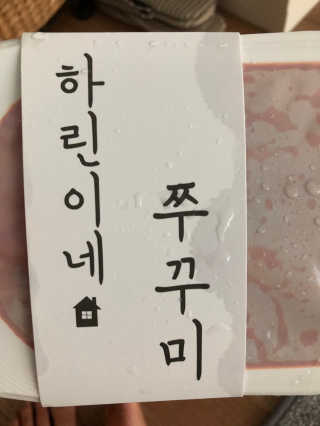 하린이네
쭈꾸미